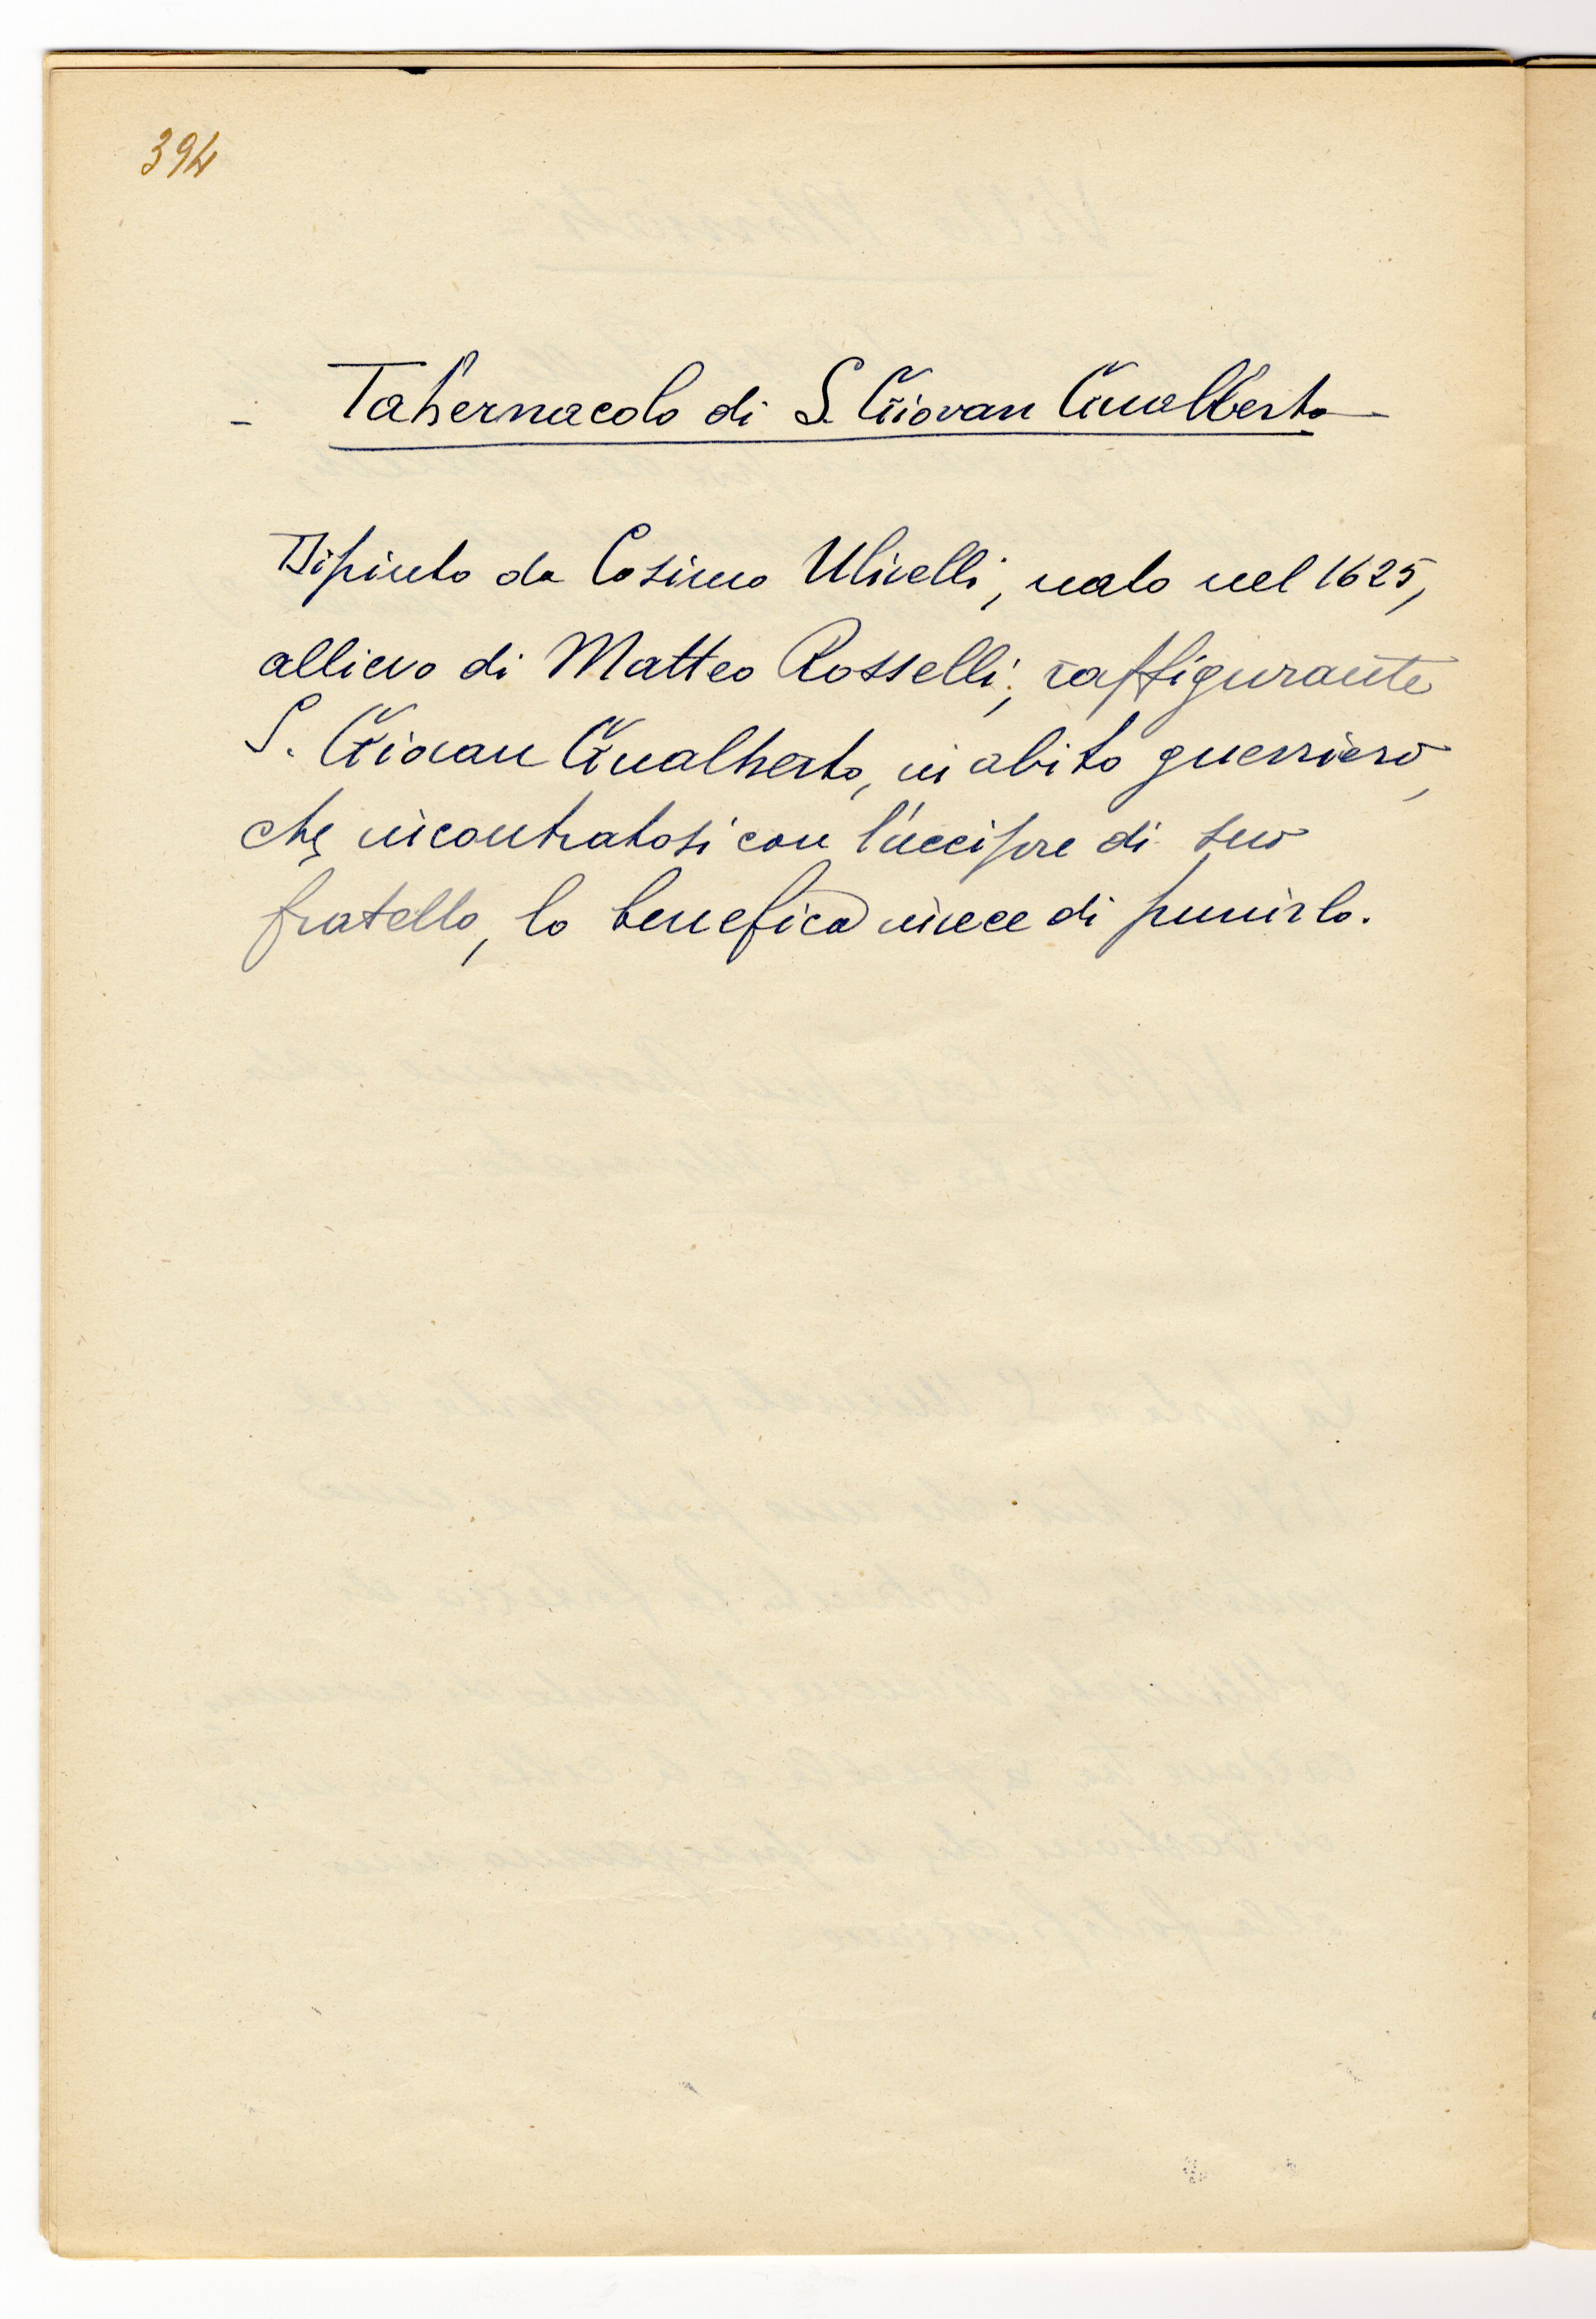 394
- Tabernacolo di S. Giovan Gualberto -
Dipinto da Cosimo Ulivelli, nato nel 1625,
allievo di Matteo Rosselli, raffigurante
S. Giovan Gualberto, in abito guerriero,
che, incontratosi con l'uccisore di suo
fratello, lo benefica invece di punirlo.